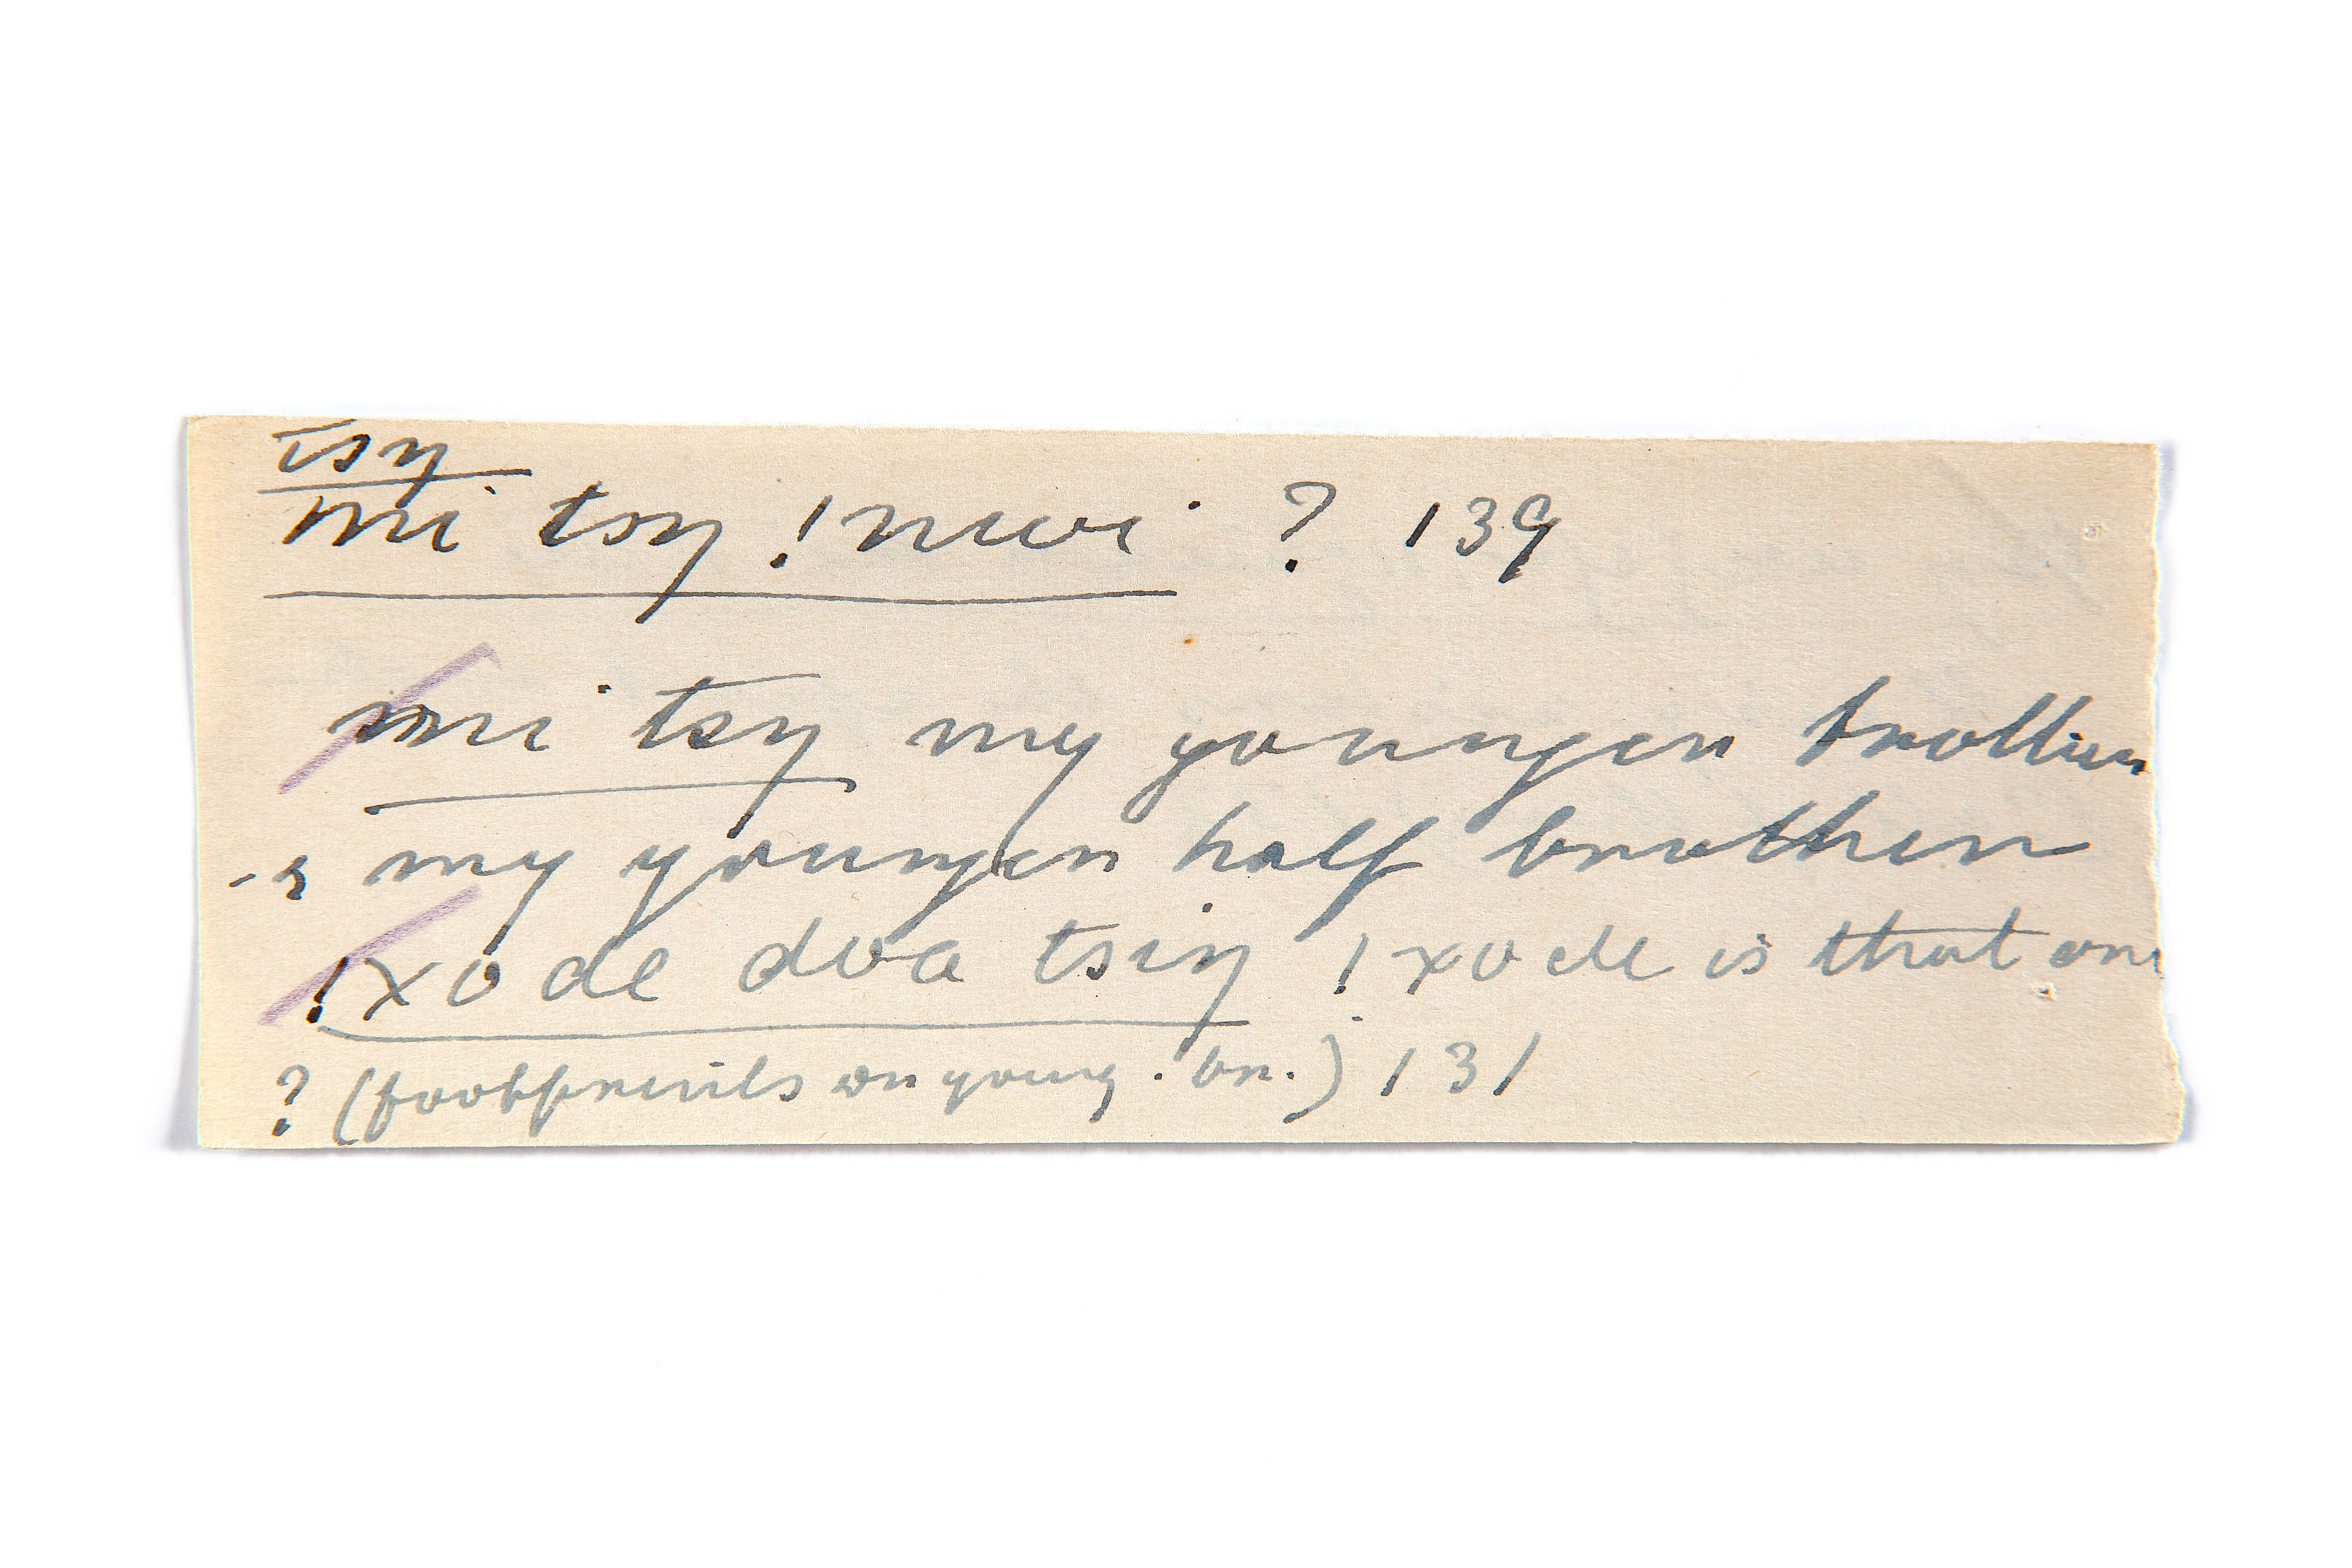 tsŋ
mi tsŋ !nwi ? 139
mi tsŋ my younger brother
-s my younger half brother
!xo de doa tsiŋ !xo de is that one
? (footprints on young. br.) 131